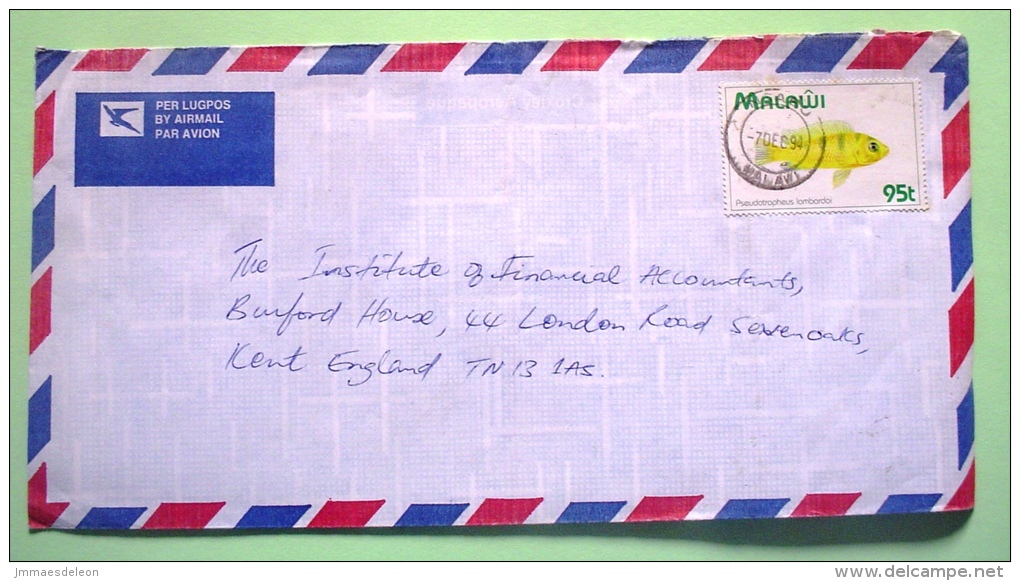 PER LUGPOS
BY AIRMAIL
PAR AVION
MALAŴI
-7DEC94
MALAWI
95t
Pseudotropheus lombardoi
The Institute of Financial Accountants,
Burford House, 44 London Road Sevenoaks,
Kent England TN13 1AS.
jmmaesdeleon
www.delcampe.net